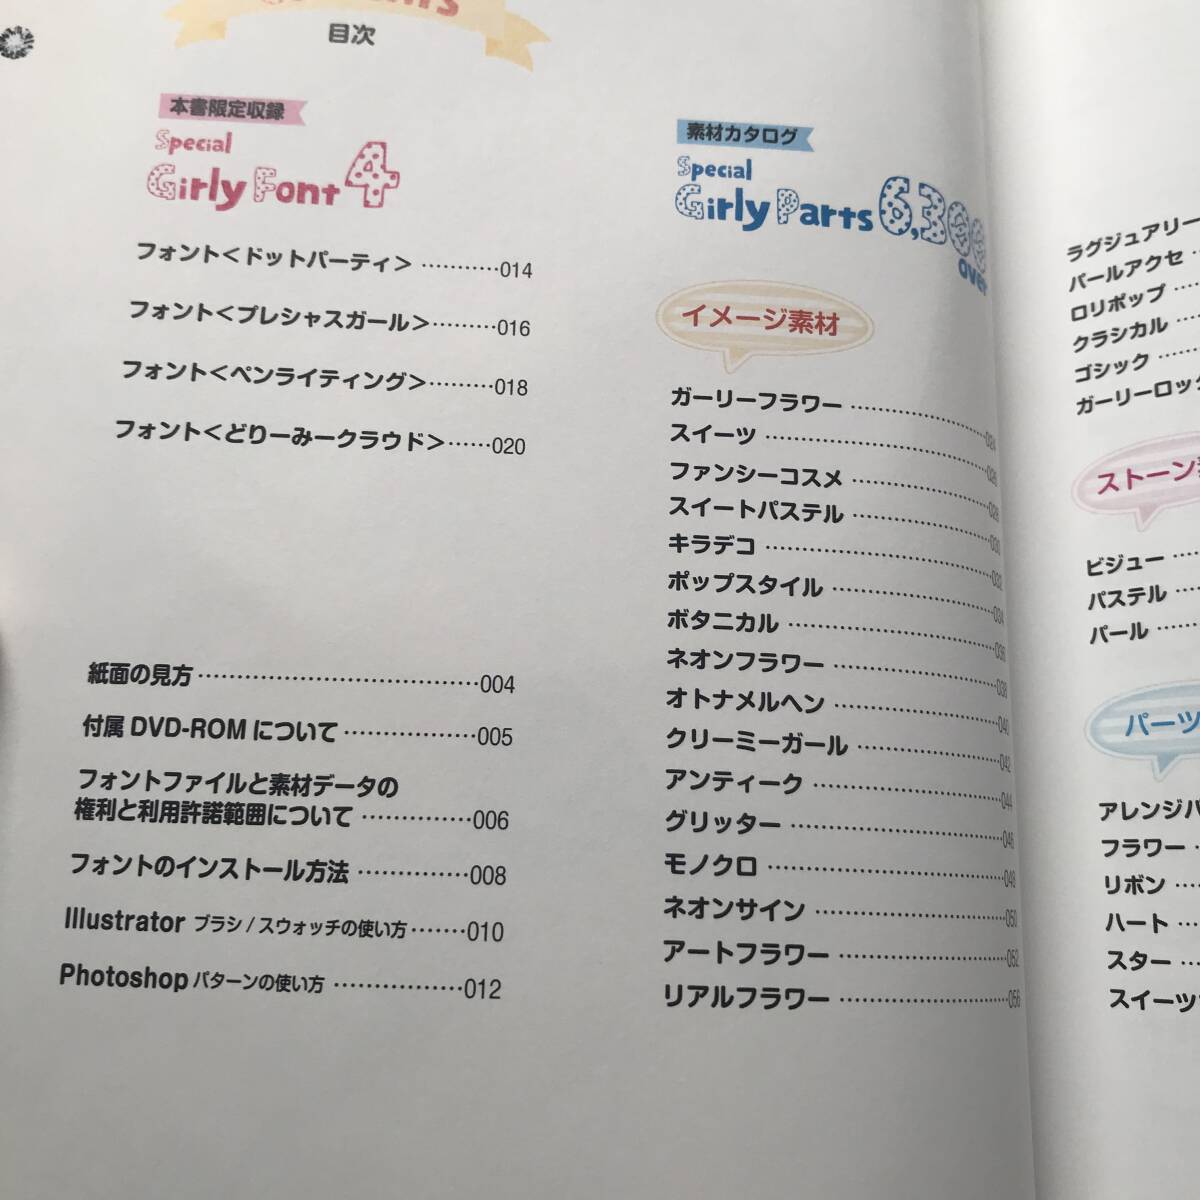 目次
本書限定収録
Special
Girly Font 4
フォント<ドットパーティ> …………014
フォント<プレシャスガール>………016
フォント<ペンライティング>………018
フォント<どりーみークラウド>……020
紙面の見方………………………………004
付属 DVD-ROM について………………005
フォントファイルと素材データの
権利と利用許諾範囲について……………006
フォントのインストール方法……………008
Illustrator ブラシ/スウォッチの使い方……010
Photoshop パターンの使い方………………012
素材カタログ
Special
Girly Parts 6,300
over
イメージ素材
ガーリーフラワー………………024
スイーツ………………026
ファンシーコスメ………………028
スイートパステル………………030
キラデコ………………032
ポップスタイル………………034
ボタニカル………………036
ネオンフラワー………………038
オトナメルヘン………………040
クリーミーガール………………042
アンティーク………………044
グリッター………………046
モノクロ………………048
ネオンサイン………………050
アートフラワー………………052
リアルフラワー………………056
ラグジュアリー
パールアクセ…
ロリポップ……
クラシカル……
ゴシック………
ガーリーロック
ストーン
ビジュー……
パステル……
パール………
パーツ
アレンジパ
フラワー…
リボン……
ハート……
スター……
スイーツ